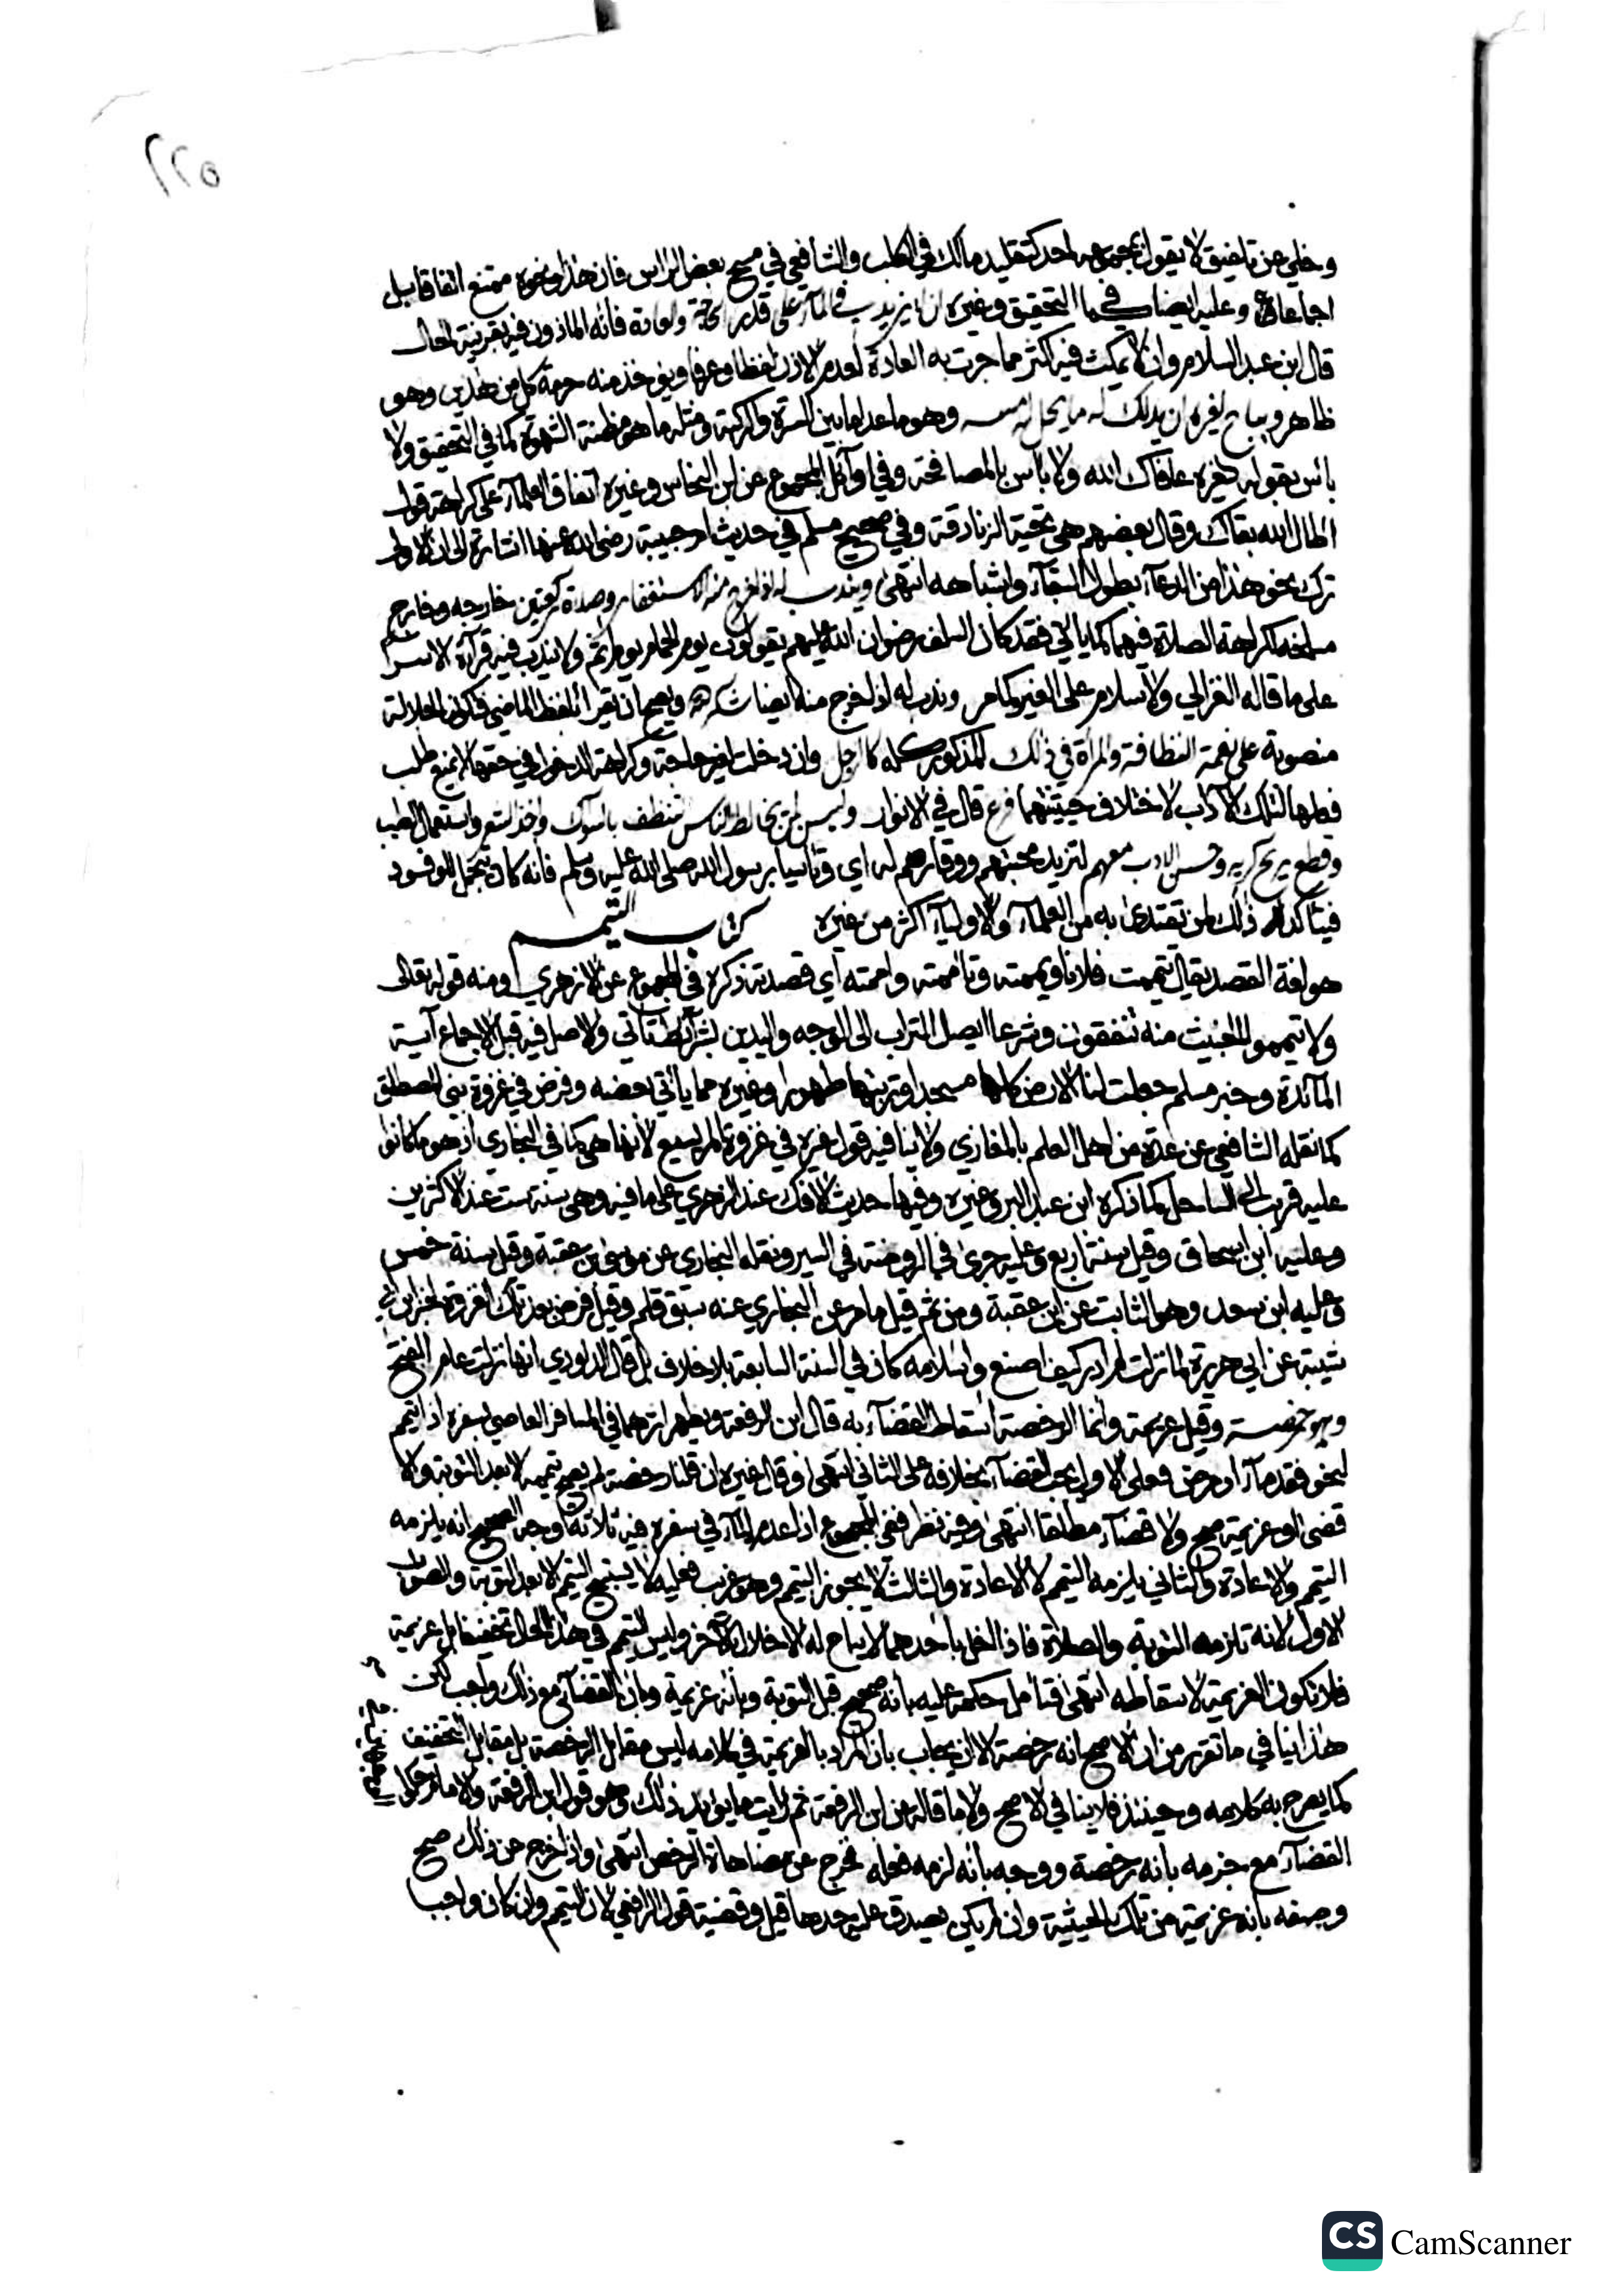 ٢٢٥
وخلي عن تلفيق لا يقول بمجموعه احد كتقليد مالك في الكلب والشافعي في مسح بعض الراس فان هذا ونحوه ممتنع اتفاقا بل
اجماعا وعليه ايضا كما في التحقيق وغيره ان لا يزيد في المآء على قدر الحاجة والعادة فانه الماذون فيه بقرينة الحال
قال ابن عبد السلام وان لا يمكث فيه اكثر مما جرت به العادة لعدم الاذن لفظا وعرفا ويوخذ منه حرمة كل من هذين وهو
ظاهر ويباح لغيره ان يدلك له ما يحل له مسه وهو ما عدا ما بين السرة والركبة ومثله ما هو مظنة الشهوة كما في التحقيق ولا
باس بقوله لغيره عافاك الله ولا باس بالمصافحة وفي اوآئل المجموع عن ابن النحاس وغيره اتفاق العلمآء على كراهة قول
اطال الله بقاك وقال بعضهم هي تحية الزنادقة وفي صحيح مسلم في حديث ام حبيبة رضى الله عنها اشارة الى ان الاولى
ترك نحو هذا من الدعآء بطول البقآء واشباهه انتهى ويندب له اذا خرج منه الاستغفار وصلاة ركعتين خارجه وخارج
مسلخه لكراهة الصلاة فيهما كما ياتي فقد كان السلف رضوان الله عليهم يقولون يوم الحمام يوم اثم ولا يندب فيه قرآءة الاسرا
على ما قاله الغزالي ولا سلام على الغير كما مر وندب له اذا خرج منه ايضا شكر الله ويصح ان يقرا بلفظ الماضي فتكون الجلالة
منصوبة على نعمة النظافة والمراة في ذلك المذكور كله كالرجل وان دخلت لغير حاجة وكراهة الدخول في حقها لا يمنع طلب
فعلها لتلك الاداب لاختلاف حيثيتهما فرع قال في الانوار وليس لمن يخالط الناس تنظف بالسواك واخذ الشعر واستعمال الطيب
وقطع ريح كريه وحسن الادب معهم لتزيد محبتهم ووقارهم له اي وتاسيا برسول الله صلى الله عليه وسلم فانه كان يتجمل للوفود
فيتاكد ذلك لمن يقتدى به من العلمآء والاوليآء اكثر من غيره كتاب التيمم
هو لغة القصد يقال تيممت فلانا ويممته وتاممته واممته اي قصدته ذكره في المجموع عن الازهري ومنه قوله تعالى
ولا تيمموا الخبيث منه تنفقون وشرعا ايصال التراب الى الوجه واليدين بشرآئط تاتي والاصل فيه قبل الاجماع آية
المآئدة وخبر مسلم جعلت لنا الارض كلها مسجدا وتربتها طهورا وغيره مما ياتي بعضه وفرض في غزوة بني المصطلق
كما نقله الشافعي عن عدة من اهل العلم بالمغازي ولا ينافيه قول غيره في غزوة المريسيع لانها هي كما في البخاري اذ هو ما كانوا
عليه قريب الى الساحل كما ذكره ابن عبد البر وغيره وفيها حديث الافك عند الزهري على ما فيه وهي سنة ست عند الاكثرين
وعليه ابن اسحاق وقيل سنة اربع وعليه جرى في الروضة في السير ونقله البخاري عن موسى بن عقبة وقيل سنة خمس
وعليه ابن سعد وهو الثابت عن ابن عقبة ومن ثم قيل ما مر عن البخاري عنه سبق قلم وقيل فرض بعد تلك الغزوة لخبر ابن ابي
شيبة عن ابي هريرة لما نزلت لم ادر كيف اصنع واسلامه كان في السنة السابعة بلا خلاف بل قال الداوري انها نزلت عام الفتح
وهو رخصة وقيل عزيمة وانما الرخصة اسقاط القضآء به قال ابن الرفعة ويظهر اثرهما في المسافر العاصي بسفره اذا تيمم
لنحو فقد مآء او مرض فعلى الاول يجب القضآء بخلافه على الثاني انتهى وقال غيره ان قلنا رخصة لم يصح تيممه الا بعد التوبة والا
قضى او عزيمة صح ولا قضآء مطلقا انتهى وفيه نظر ففي المجموع اذا عدم المآء في سفره فيه ثلاثة اوجه الصحيح انه يلزمه
التيمم والاعادة والثاني يلزمه التيمم لا الاعادة والثالث لا يجوز التيمم وهو غريب فعليه لا يستبيح التيمم الا بعد التوبة والصواب
الاول لانه تلزمه التوبة والصلاة فاذا اخل باحدهما لا يباح له الاخلال بالاخر وليس التيمم في هذا الحال تخفيفا بل عزيمة
فلا تكون العزيمة لاسقاطه انتهى فتامل حكمه عليه بانه صحيح قبل التوبة وبانه عزيمة وبان القضآء مع ذلك واجب لكن
هذا ينافي ما تقرر من ان الاصح انه رخصة الا ان يجاب بان المراد بالعزيمة في كلامه ليس مقابل الرخصة بل مقابل التخفيف
كما يصرح به كلامه وحينئذ فلا ينافي الاصح ولا ما قاله عن ابن الرفعة ثم رايت ما يويد ذلك وهو قول ابن الرفعة والامام
القضآء مع جزمه بانه رخصة ووجه بانه لزمه فعله فخرج عن مضاهاة الرخص انتهى واذا خرج عن ذلك صح
وصفه بانه عزيمة من تلك الحيثية وان لم يكن يصدق عليه حدها قيل وقضية قول الرافعي لان التيمم وان كان واجبا
CS CamScanner